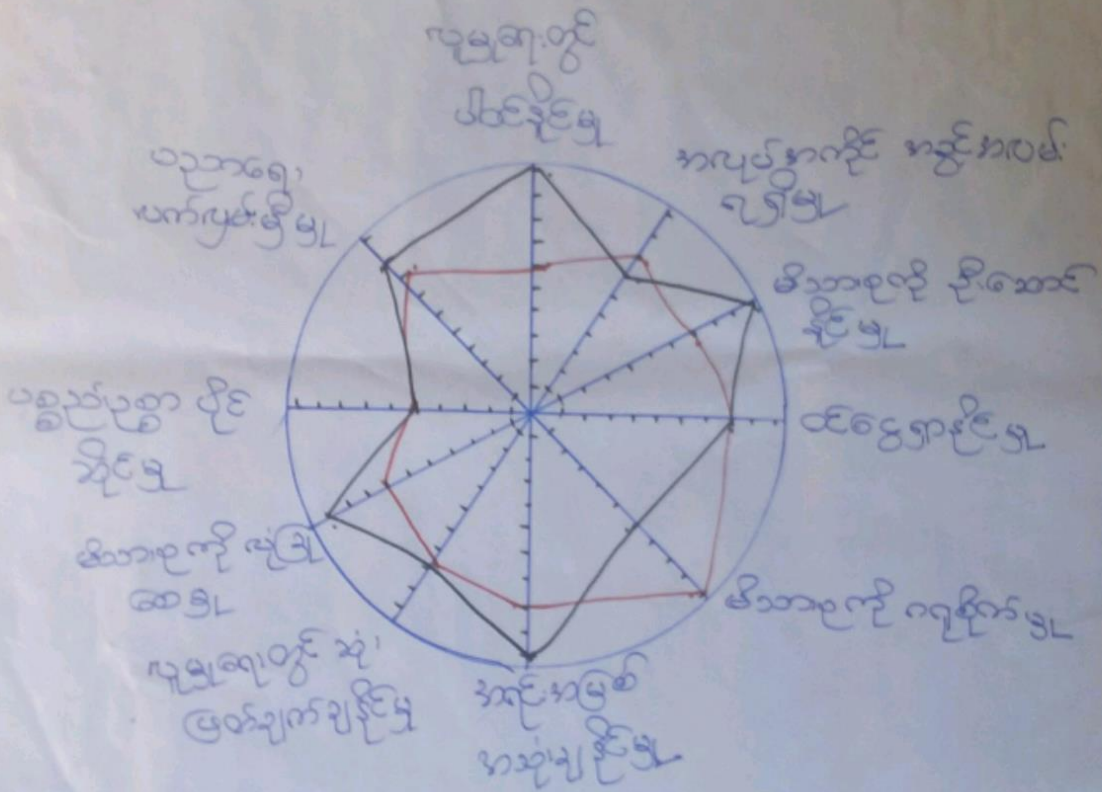 လူမှုရေးတွင်
ပါဝင်နိုင်မှု
အလုပ်အကိုင် အခွင့်အလမ်း
ရရှိမှု
မိသားစုကို ဦးဆောင်
နိုင်မှု
ဝင်ငွေရှာနိုင်မှု
မိသားစုကို ဂရုစိုက်မှု
အရင်းအမြစ်
အသုံးချနိုင်မှု
လူမှုရေးတွင် ဆုံး
ဖြတ်ချက်ချနိုင်မှု
မိသားစုကို လုံခြုံ
စေမှု
ပစ္စည်ဥစ္စာ ပိုင်
ဆိုင်မှု
ပညာရေး
လက်လှမ်းမှီမှု